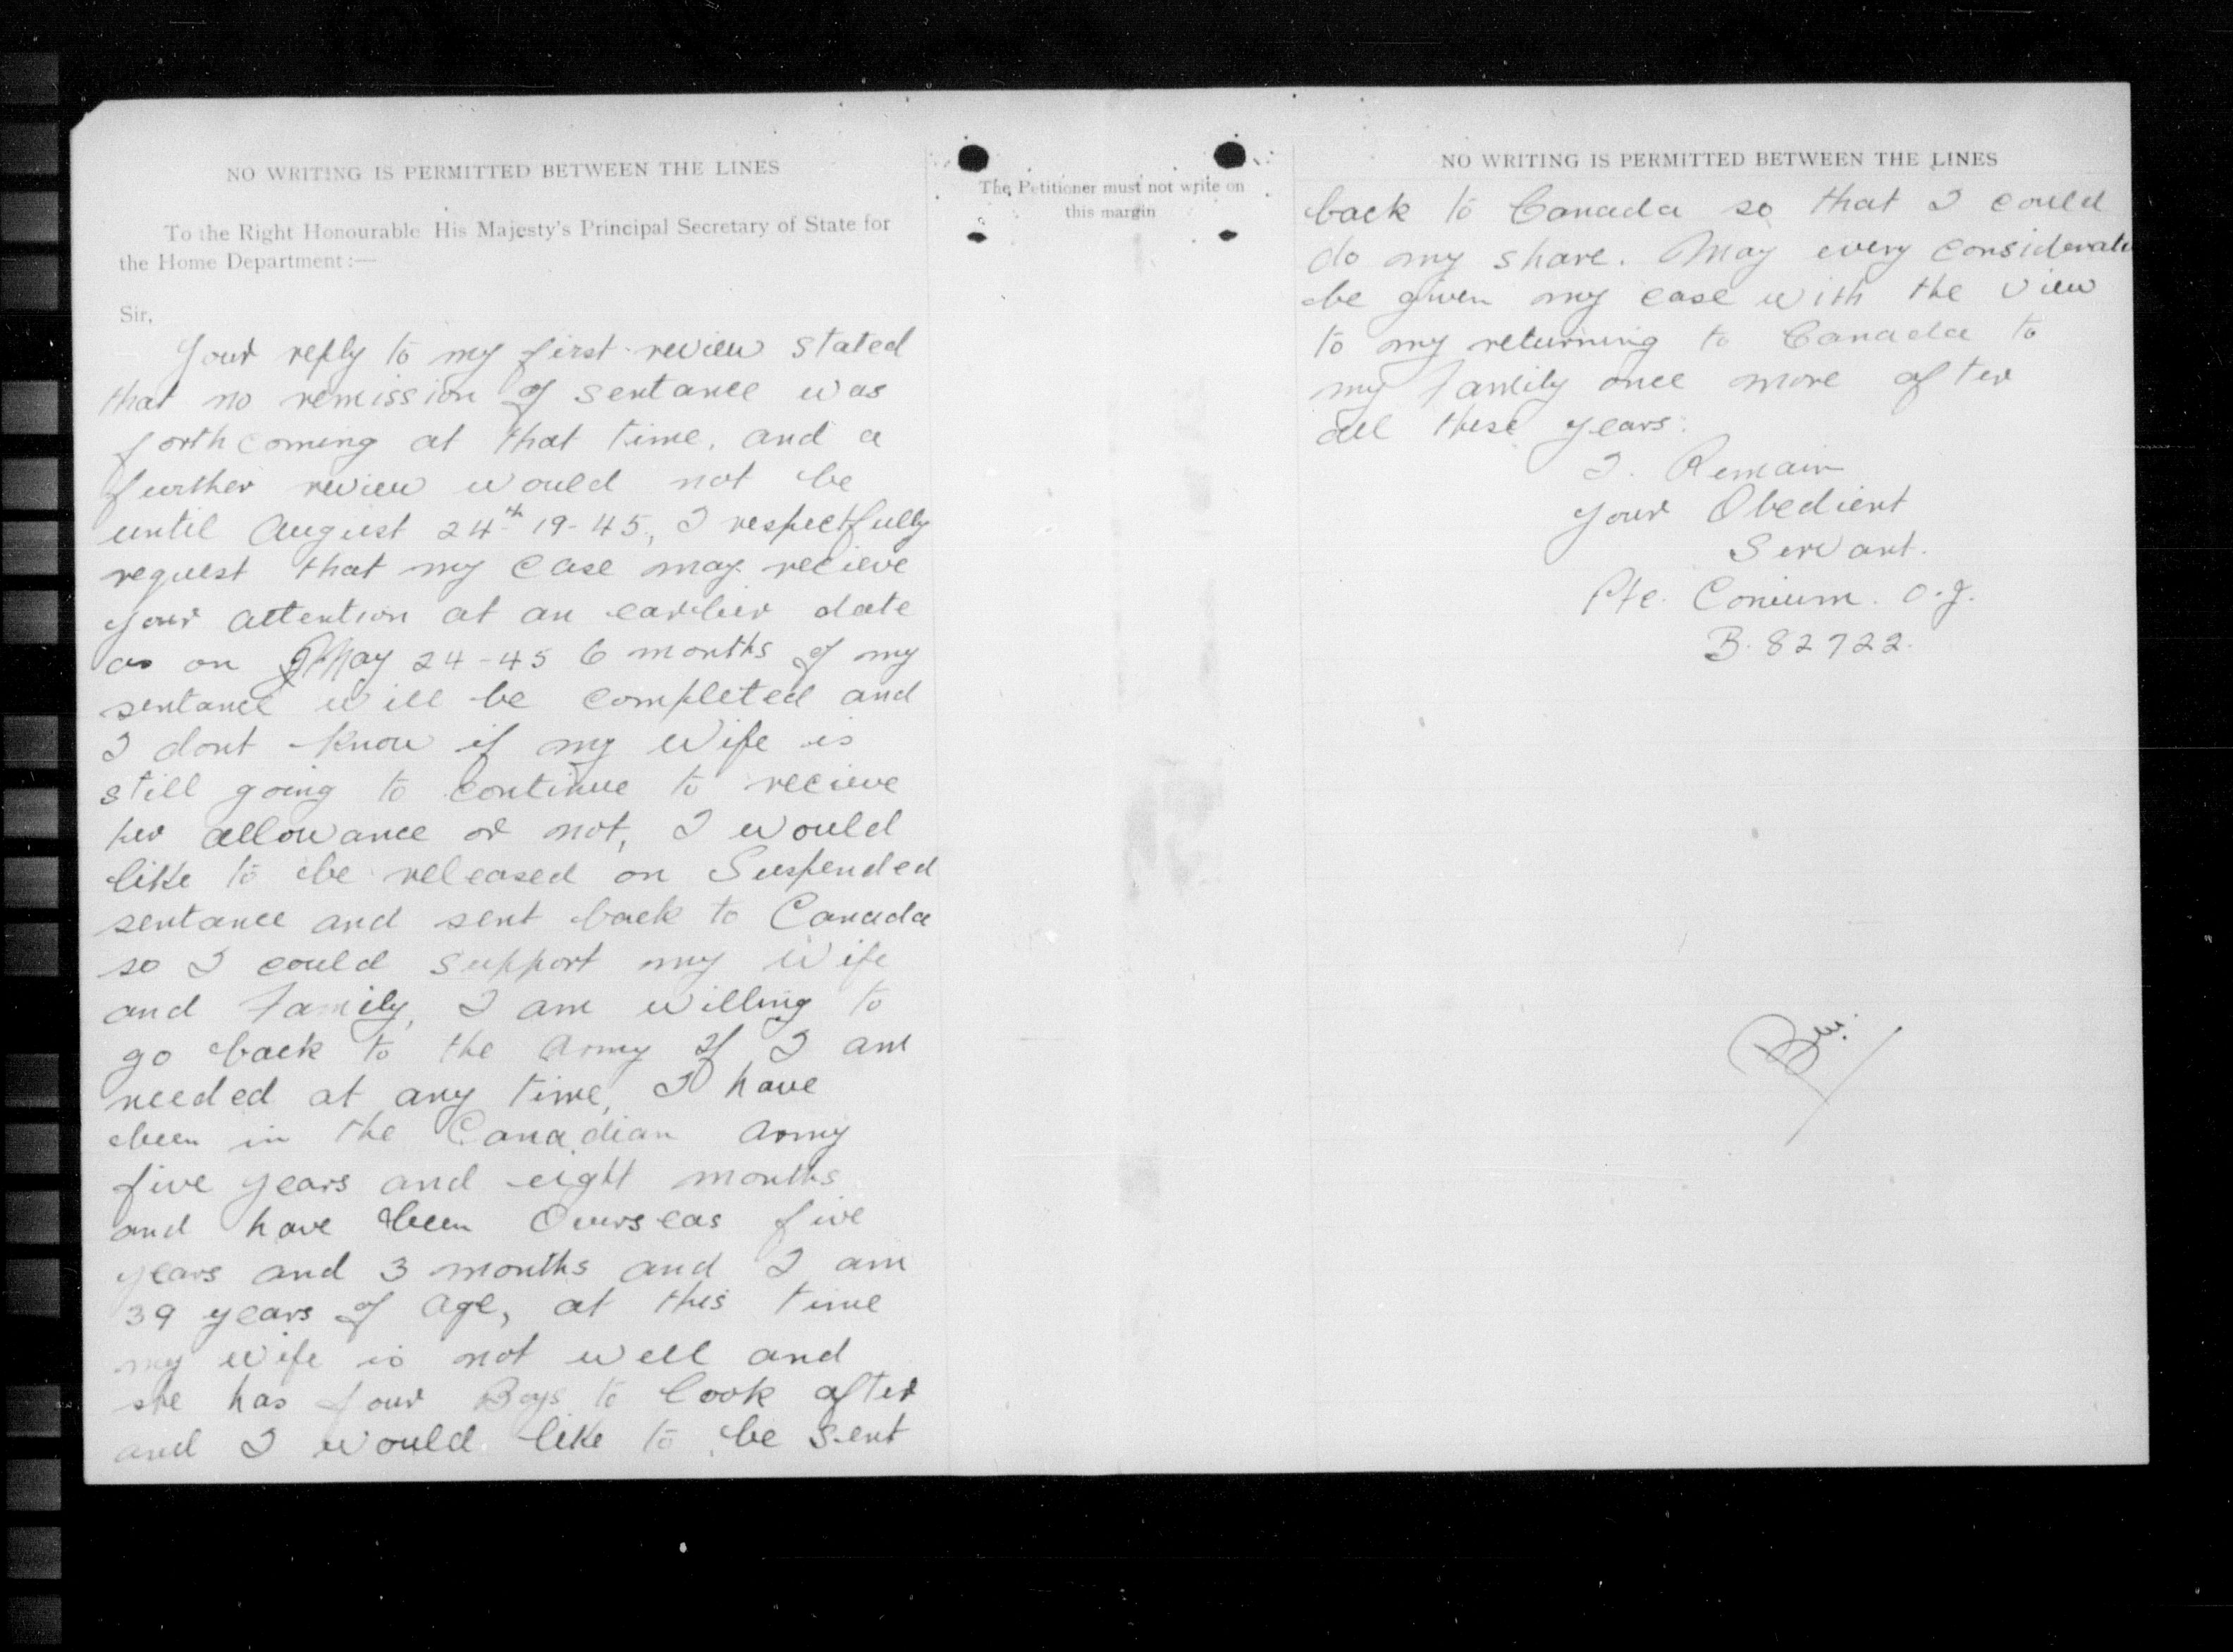 NO WRITING IS PERMITTED BETWEEN THE LINES
To the Right Honourable His Majesty's Principal Secretary of State for
the Home Department :—
Sir,
Your reply to my first review stated
that no remission of sentance was
forthcoming at that time, and a
further review would not be
until August 24th 19-45., I respectfully
request that my case may recieve
your attention at an earlier date
as on May 24-45 6 months of my
sentance will be completed and
I dont know if my wife is
still going to continue to recieve
her allowance or not, I would
like to be released on Suspended
sentance and sent back to Canada
so I could support my wife
and family, I am willing to
go back to the Army If I am
needed at any time, I have
been in the Canadian Army
five years and eight months
and have been Overseas five
years and 3 months and I am
39 years of age, at this time
my wife is not well and
she has four Boys to look after
and I would like to be sent
The Petitioner must not write on
this margin
NO WRITING IS PERMITTED BETWEEN THE LINES
back to Canada so that I could
do my share. May every considerati
be given my case with the view
to my returning to Canada to
my family once more after
all these years.
I. Remain
your Obedient
Servant.
Pte. Conium. O.J.
B. 82722.